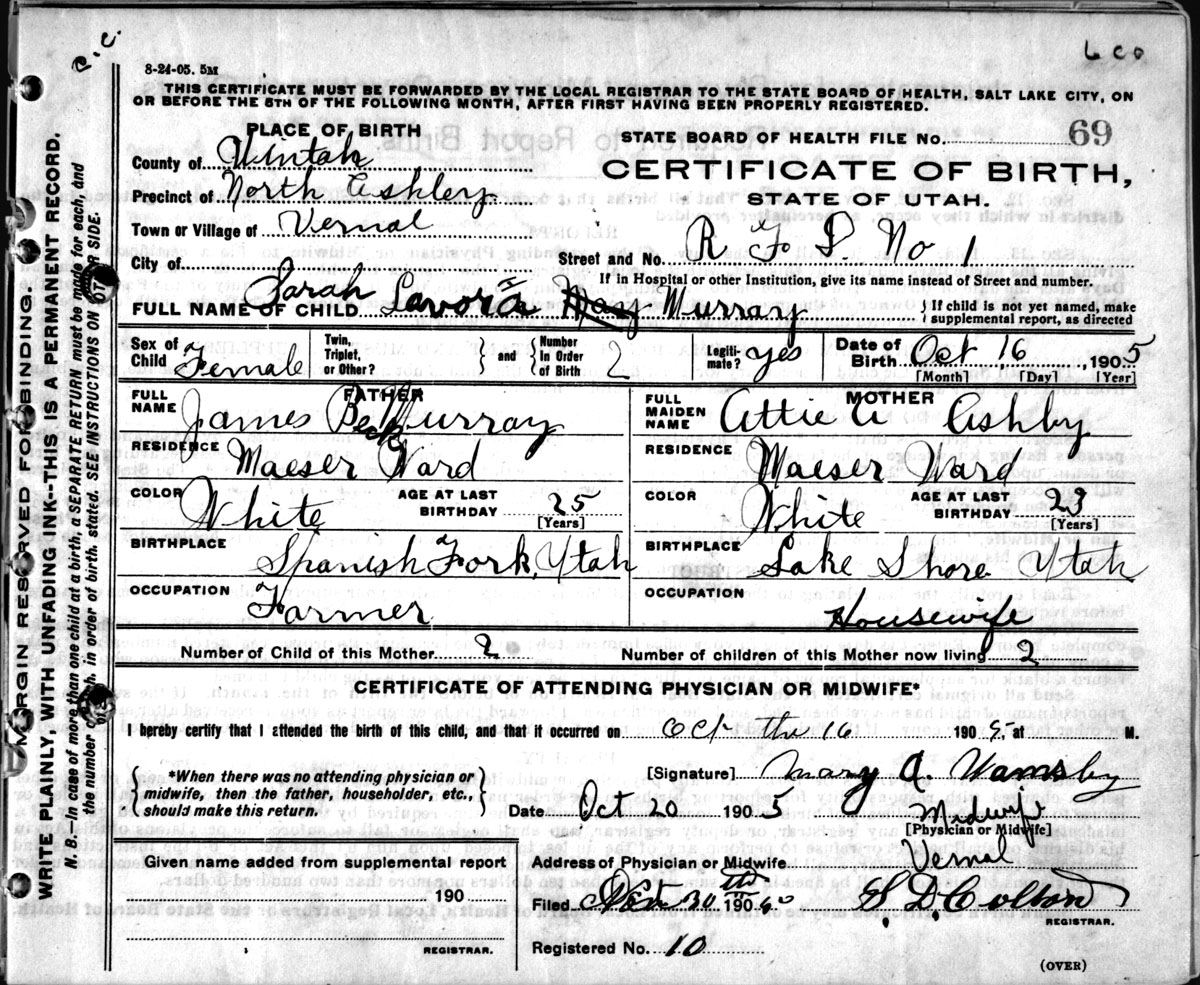 P. C.
6 C o
8-24-05. 5M
THIS CERTIFICATE MUST BE FORWARDED BY THE LOCAL REGISTRAR TO THE STATE BOARD OF HEALTH, SALT LAKE CITY, ON
OR BEFORE THE 5TH OF THE FOLLOWING MONTH, AFTER FIRST HAVING BEEN PROPERLY REGISTERED.
PLACE OF BIRTH
STATE BOARD OF HEALTH FILE No. 69
County of Uintah
CERTIFICATE OF BIRTH,
Precinct of North Ashley
STATE OF UTAH.
Town or Village of Vernal
City of
Street and No. R F D. No 1
If in Hospital or other Institution, give its name instead of Street and number.
FULL NAME OF CHILD Sarah Lavora May Murray
{ If child is not yet named, make supplemental report, as directed
Sex of Child Female
Twin, Triplet, or Other?
and
Number in Order of Birth 2
Legitimate? yes
Date of Birth Oct 16 1905
[Month] [Day] [Year]
FATHER
FULL NAME James Peck Murray
RESIDENCE Maeser Ward
COLOR White
AGE AT LAST BIRTHDAY 25
[Years]
BIRTHPLACE Spanish Fork, Utah
OCCUPATION Farmer
MOTHER
FULL MAIDEN NAME Attie A Ashby
RESIDENCE Maeser Ward
COLOR White
AGE AT LAST BIRTHDAY 23
[Years]
BIRTHPLACE Lake Shore Utah
OCCUPATION Housewife
Number of Child of this Mother 2
Number of children of this Mother now living 2
CERTIFICATE OF ATTENDING PHYSICIAN OR MIDWIFE*
I hereby certify that I attended the birth of this child, and that it occurred on Oct the 16 1905, at M.
*When there was no attending physician or
midwife, then the father, householder, etc.,
should make this return.
[Signature] Mary A. Wamsby
Date Oct 20 1905
Midwife
[Physician or Midwife]
Given name added from supplemental report
190
REGISTRAR.
Address of Physician or Midwife Vernal
Filed Oct 20th 190 S. D. Colton
REGISTRAR.
Registered No. 10
(OVER)
MARGIN RESERVED FOR BINDING
WRITE PLAINLY, WITH UNFADING INK--THIS IS A PERMANENT RECORD.
N. B. In case of more than one child at a birth, a SEPARATE RETURN must be made for each, and
the number of each, in order of birth, stated. SEE INSTRUCTIONS ON OTHER SIDE.